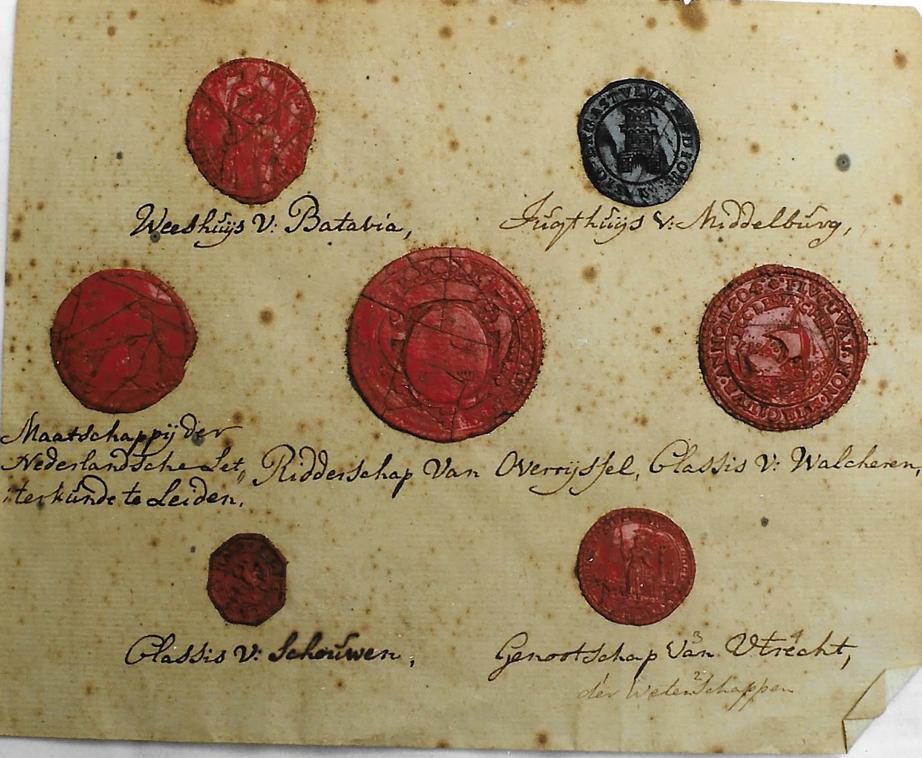 Weeshuÿs V: Batavia,
Tugthuÿs V: Middelburg,
Maatschappÿ der
Nederlandsche Let„
„terkunde te Leiden,
Ridderschap Van Overÿssel,
Classis V: Walcheren,
Classis V: Schouwen,
Genootschap Van 3 Utrecht, 4
der Wetenschappen 2